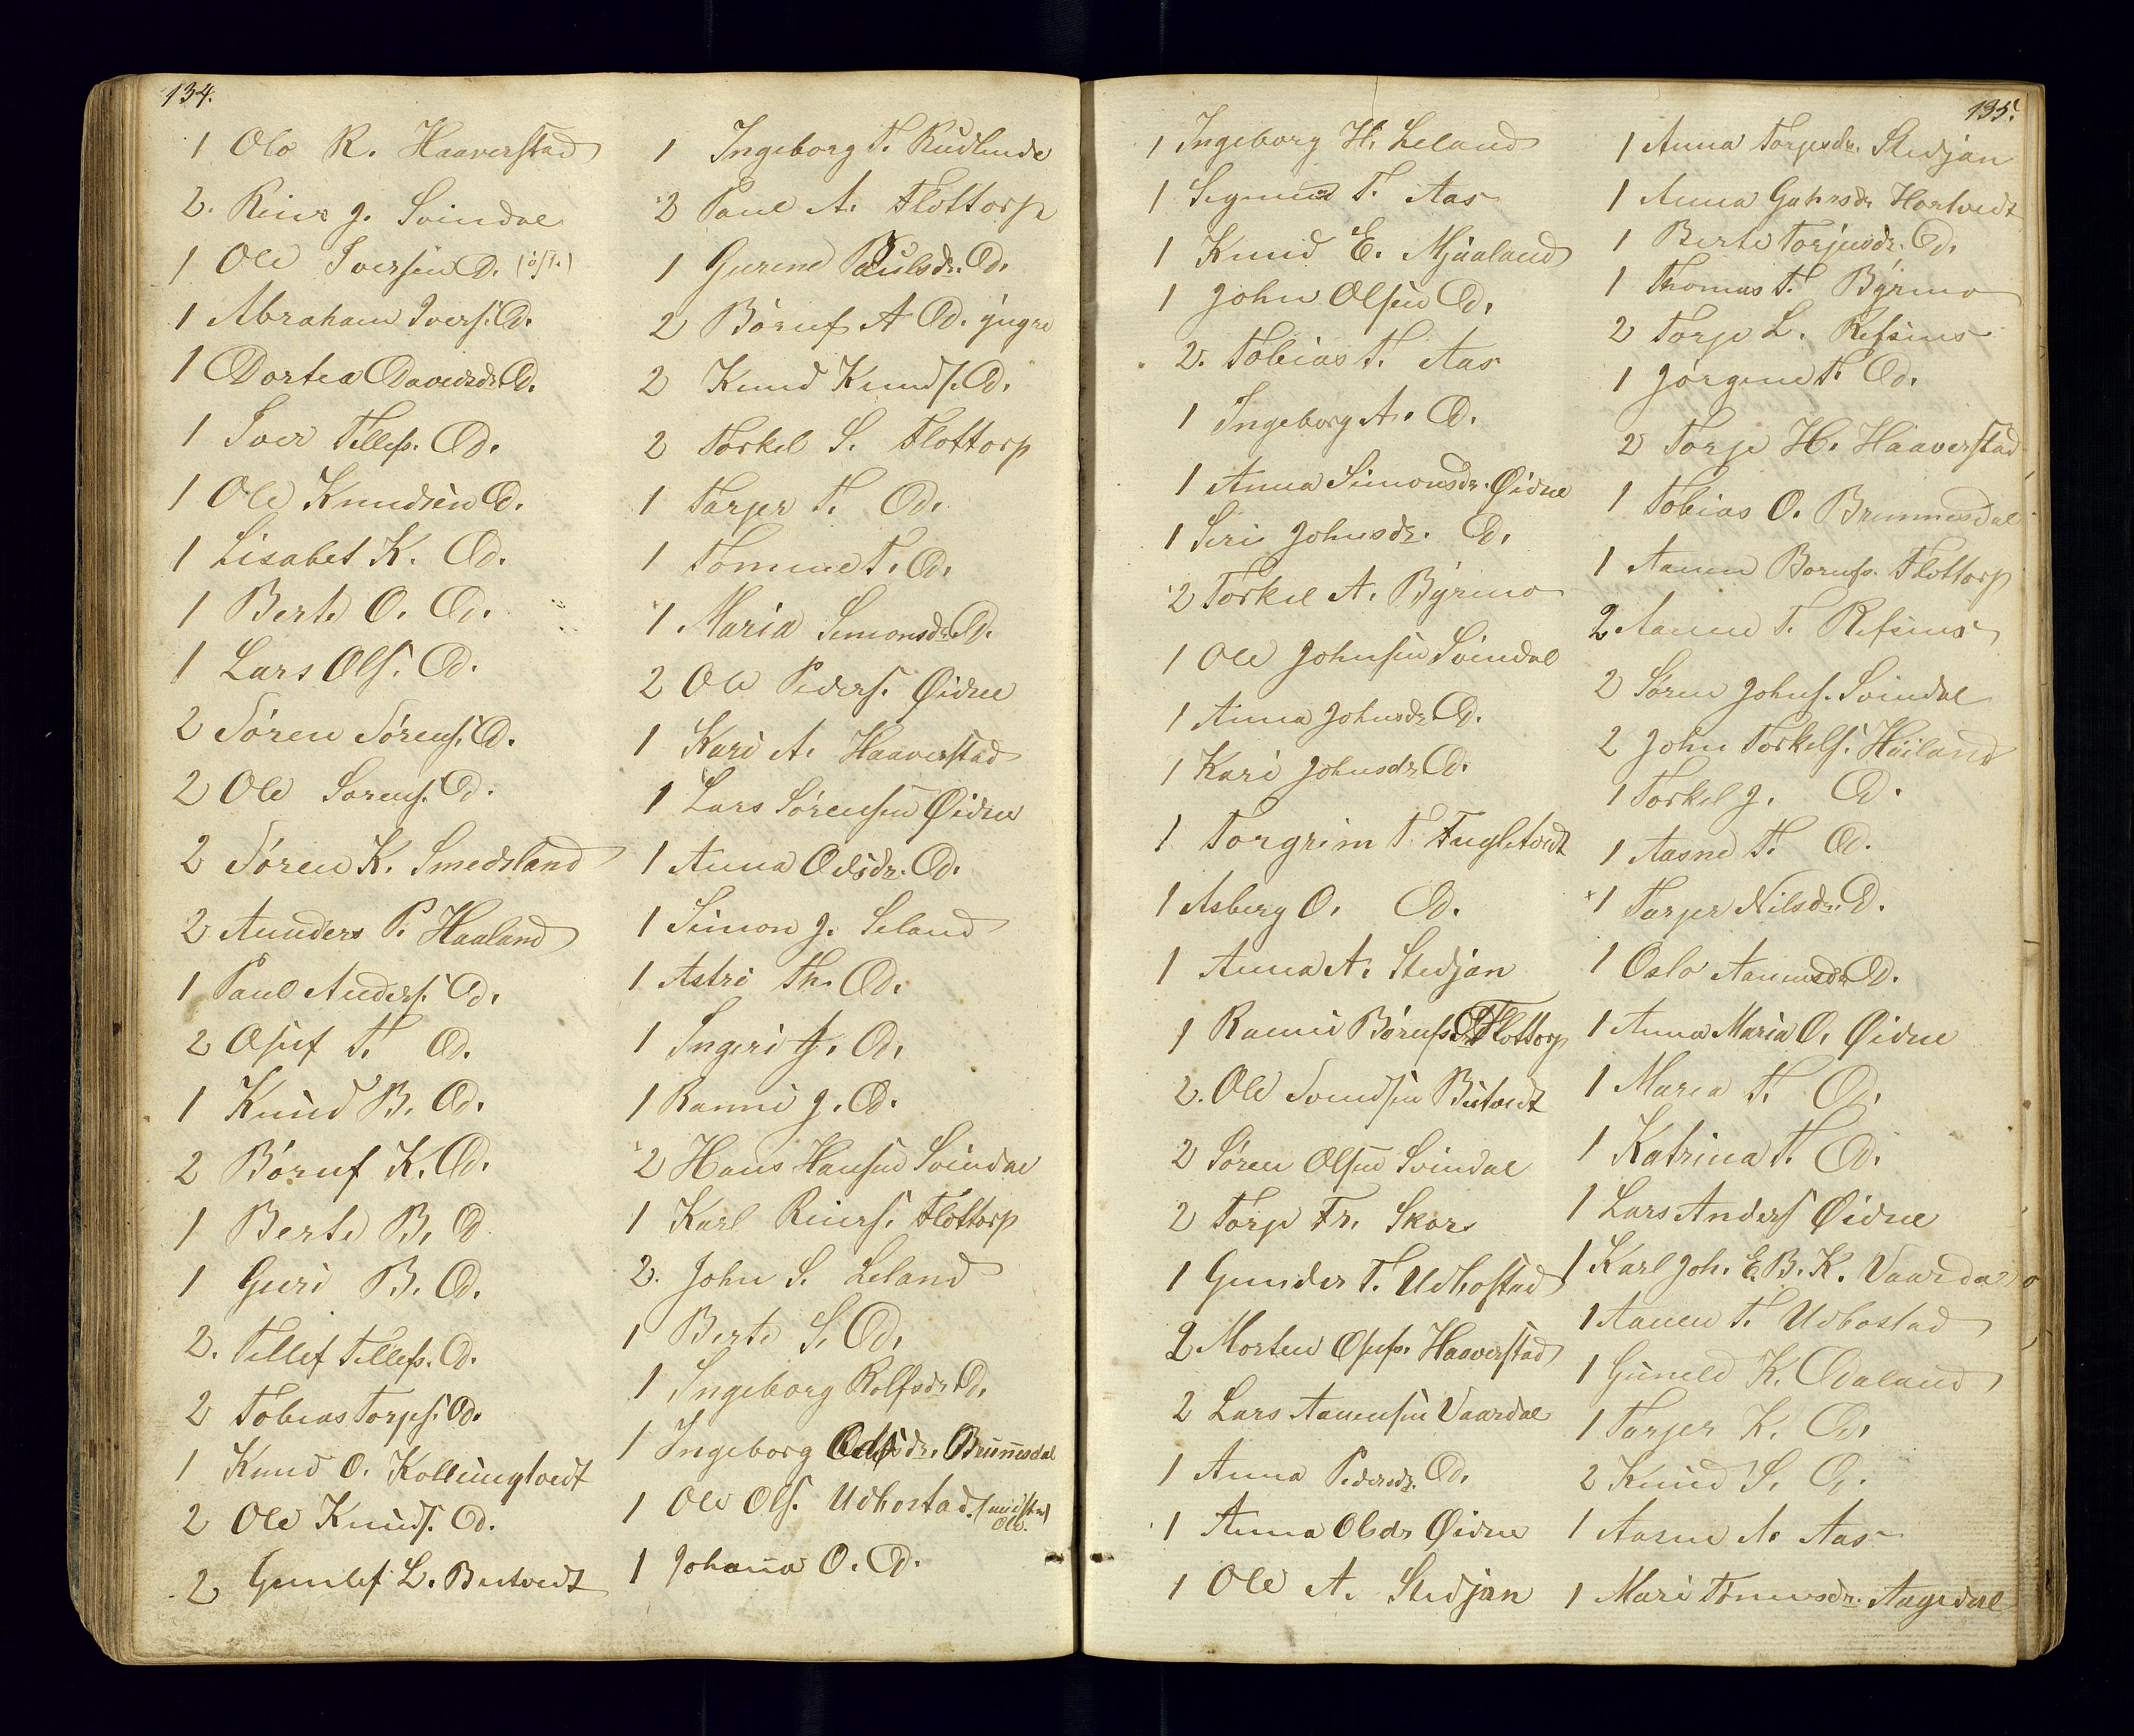 134.
1 Olo R. Haaverstad
2. Reier J. Svindal
1 Ole Iversen D.
1 Abraham Ivers. D.
1 Dortea Davidsdr. D.
1 Iver Tellefs. D.
1 Ole Knudsen D.
1 Lisabet K. D.
1 Berte O. D.
1 Lars Ols. D.
2 Søren Sørens. D.
2 Ole Sørens. D.
2 Søren K. Smedsland
2 Aunders P. Haaland
1 Paul Anders. D.
2 Osuf T. D.
1 Knud B. D.
2 Børuf K. D.
1 Berte B. D
1 Guri B. D.
2. Tellef Tellefs. D.
2 Tobias Torjes. D.
1 Knud O. Kollungtvedt
2 Ole Knuds. D.
2 Gunlef L. Butvedt
1 Ingeborg T. Rudlende
2 Paul A. Flottorp
1 Gurine Paulsdr. D.
2 Børuf A D. yngre
2 Knud Knuds. D.
2 Torkel S. Flottorp
1 Tarjer T. D.
1 Tomine T. D.
1 Maria Simonsdr. D.
2 Ole Peders. Øidne
1 Kari A. Haaverstad
1 Lars Sørensen Øidne
1 Anna Odsdr. D.
1 Simon J. Leland
1 Astri Th. D.
1 Ingeri J. D.
1 Ranni J. D.
2 Hans Hansen Svindal
1 Karl Reiers. Flottorp
2. John S. Leland
1 Berte S. D.
1 Ingeborg Rolfsdr. D.
1 Ingeborg Odsdr. Brunnesdal
1 Ole Ols. Udbostad
1 Johanna O. D.
135.
1 Ingeborg H. Leland
1 Sigmund T. Aas
1 Knud E. Mjaaland
1 John Olsen D.
2. Tobias T. Aas
1 Ingeborg A. D.
1 Anna Simonsdr. Øidne
1 Siri Johnsdr. D.
2 Torkel A. Byrmo
1 Ole Johnsen Svindal
1 Anna Johnsdr. D.
1 Kari Johnsdr. D.
1 Torgrim T. Fugletvedt
1 Asberg O. D.
1 Anna A. Stedjan
1 Ranni Børufsdr. Flottorp
2. Ole Svendsen Butvedt
2 Søren Olsen Svindal
2 Torje Fr. Skore
1 Gunder T. Udbostad
2 Morten Osufs. Haaverstad
2 Lars Aanensen Vaardal
1 Anna Pedersdr. D.
1 Anna Olsdr Øidne
1 Ole A. Stedjan
1 Anna Torjesdr. Stedjan
1 Anna Hortvedt
1 Berte Torjusdr. D.
1 Thomas T. Byrmo
2 Torje L. Refsnes
1 Jørgine T. D.
2 Torje H. Haaverstad
1 Tobias O. Brunnesdal
1 Aanen Børufs. Flottorp
2 Aanen T. Refsnes
2 Søren Johns. Svindal
2 John Torkels. Haaland
1 Torkel J. D.
1 Aasne T. D.
1 Tarjer Nilsdr. D.
1 Oslo Aanensdr. D.
1 Anna Maria O. Øidne
1 Maren T. D.
1 Katrina T. D.
1 Lars Anders Øidne
1 Karl Joh. E. B. K. Vaardal
1 Aanen T. Udbostad
1 Guneld K. Odaland
1 Tarjer K. D.
2 Knud S. D.
1 Aasne A. Aas
1 Mari Tønnesdr. Aagedal